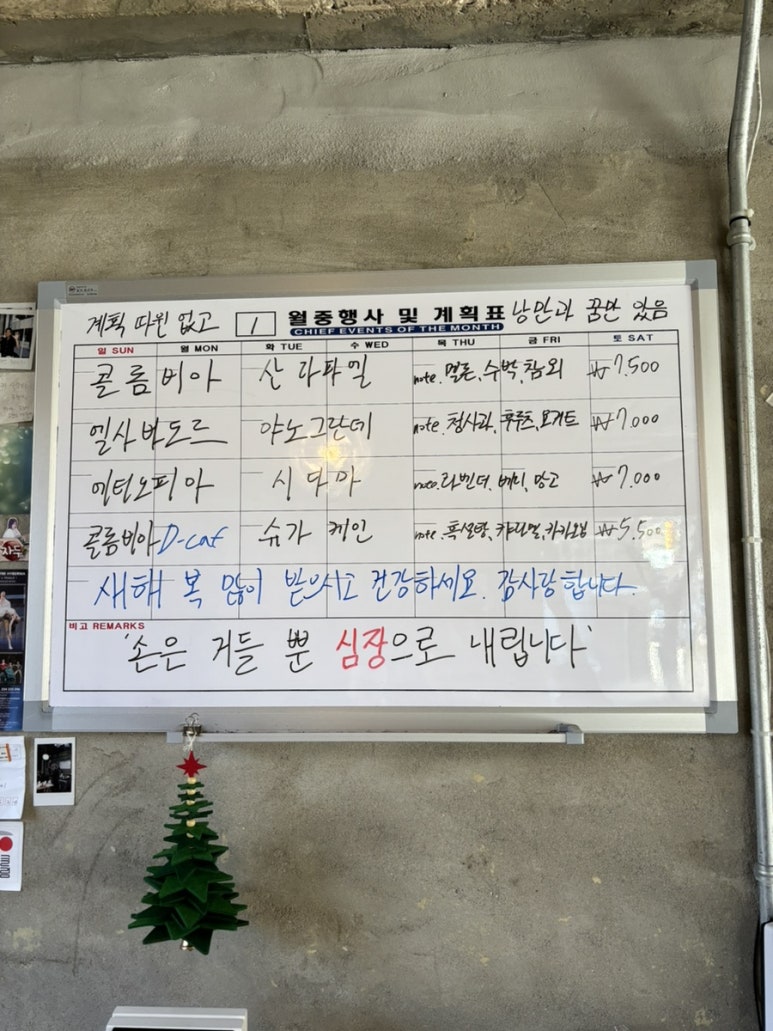 계획 따윈 없고 1 월중행사 및 계획표 낭만과 꿈만 있음
CHIEF EVENTS OF THE MONTH
일 SUN 월 MON 화 TUE 수 WED 목 THU 금 FRI 토 SAT
콜롬비아 산 라파엘 note. 멜론, 수박, 참외 ₩7,500
엘살바도르 야노그란데 note. 청사과, 후루츠, 요거트 ₩7,000
에티오피아 시다마 note. 라벤더, 베리, 망고 ₩7,000
콜롬비아 D-caf 슈가 케인 note. 흑설탕, 캬라멜, 카카오닙 ₩5,500
새해 복 많이 받으시고 건강하세요. 감사랑합니다.
비고 REMARKS
'손은 거들 뿐 심장으로 내립니다'
자두